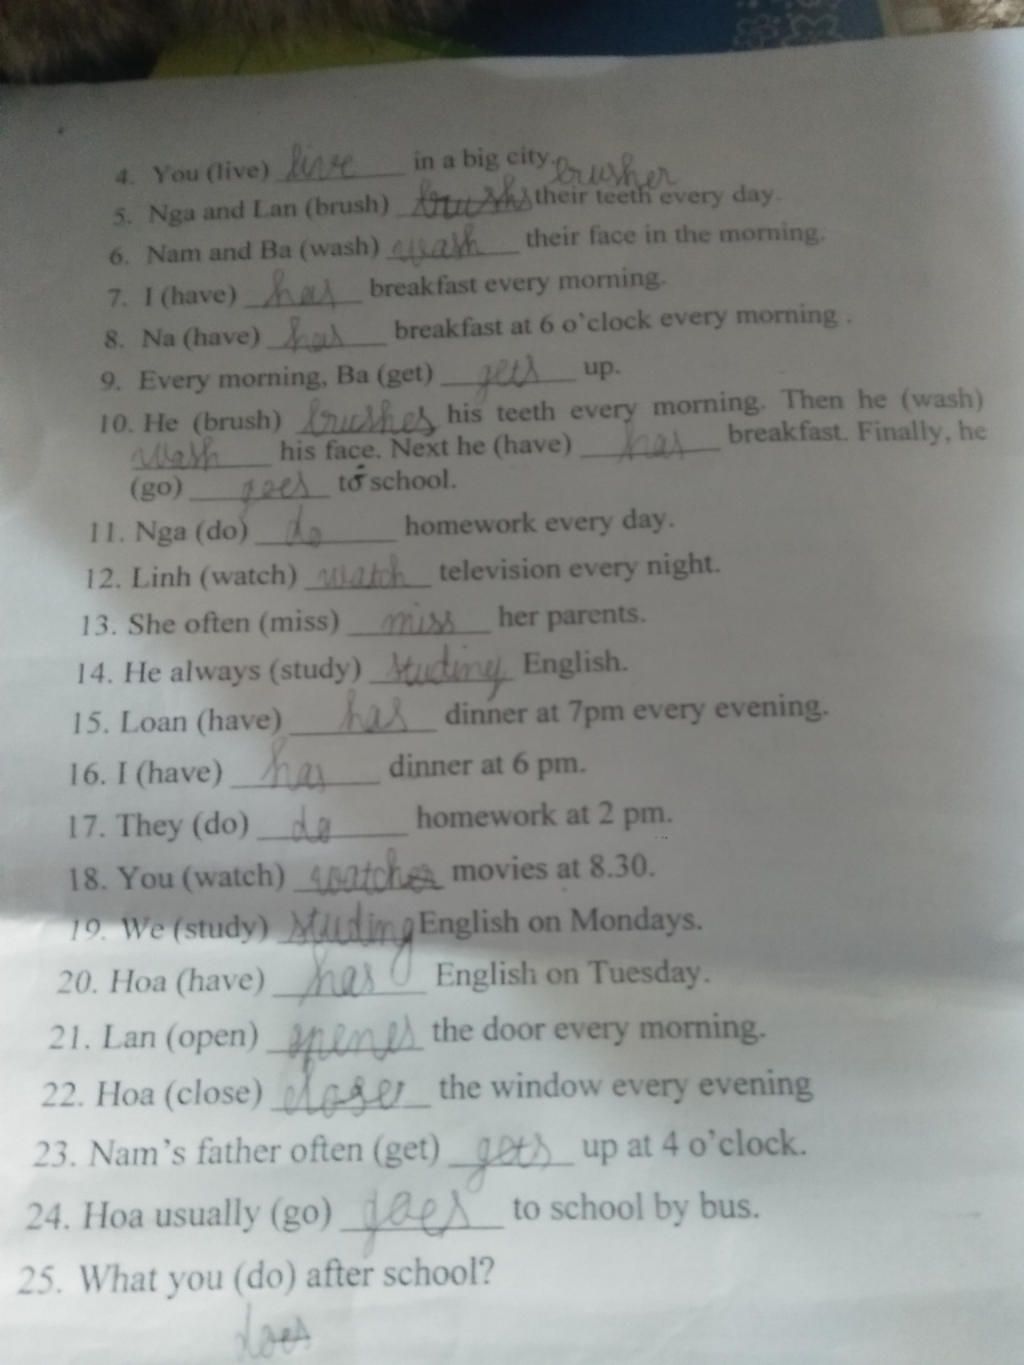 4. You (live) live in a big city.
5. Nga and Lan (brush) brushs their teeth every day.
6. Nam and Ba (wash) wash their face in the morning.
7. I (have) has breakfast every morning.
8. Na (have) has breakfast at 6 o'clock every morning .
9. Every morning, Ba (get) gets up.
10. He (brush) brushes his teeth every morning. Then he (wash)
wash his face. Next he (have) has breakfast. Finally, he
(go) goes to school.
11. Nga (do) do homework every day.
12. Linh (watch) watch television every night.
13. She often (miss) miss her parents.
14. He always (study) studing English.
15. Loan (have) has dinner at 7pm every evening.
16. I (have) has dinner at 6 pm.
17. They (do) do homework at 2 pm.
18. You (watch) movies at 8.30.
19. We (study) studing English on Mondays.
20. Hoa (have) has English on Tuesday.
21. Lan (open) openes the door every morning.
22. Hoa (close) the window every evening
23. Nam's father often (get) gets up at 4 o'clock.
24. Hoa usually (go) goes to school by bus.
25. What you (do) after school?
does